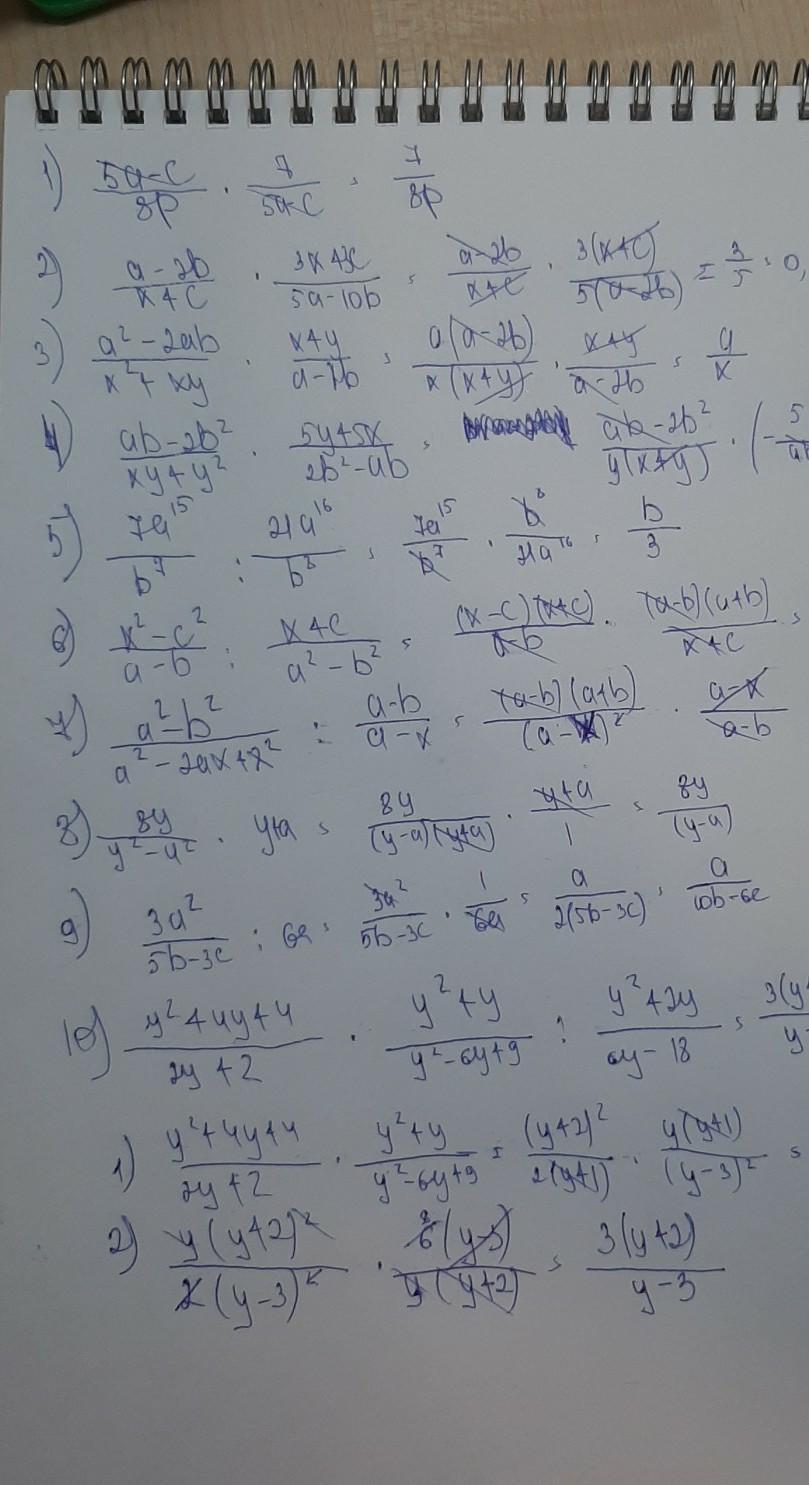 1) (5a-c)/(8p) · 7/(5a-c) = 7/(8p)
2) (a-2b)/(x+c) · (3x+3c)/(5a-10b) = (a-2b)/(x+c) · 3(x+c)/(5(a-2b)) = 3/5 = 0,
3) (a²-2ab)/(x²+xy) · (x+y)/(a-2b) = a(a-2b)/(x(x+y)) · (x+y)/(a-2b) = a/x
4) (ab-2b²)/(xy+y²) · (5y+5x)/(2b²-ab) = (ab-2b²)/(y(x+y)) · (-5
5) 7a¹⁵/b⁷ : 21a¹⁶/b⁸ = 7a¹⁵/b⁷ · b⁸/21a¹⁶ = b/3
6) (x²-c²)/(a-b) : (x+c)/(a²-b²) = (x-c)(x+c)/(a-b) · (a-b)(a+b)/(x+c) =
7) (a²-b²)/(a²-2ax+x²) : (a-b)/(a-x) = (a-b)(a+b)/(a-x)² · (a-x)/(a-b)
8) 8y/(y²-a²) · y+a = 8y/((y-a)(y+a)) · (y+a)/1 = 8y/(y-a)
9) 3a²/(5b-3c) : 6a = 3a²/(5b-3c) · 1/6a = a/(2(5b-3c)) = a/(10b-6c)
10) (y²+4y+4)/(2y+2) · (y²+y)/(y²-6y+9) : (y²+2y)/(6y-18) = 3(y
1) (y²+4y+4)/(2y+2) · (y²+y)/(y²-6y+9) = (y+2)²/(2(y+1)) · y(y+1)/(y-3)² =
2) y(y+2)²/(2(y-3)²) · 6(y-3)/(y(y+2)) = 3(y+2)/(y-3)